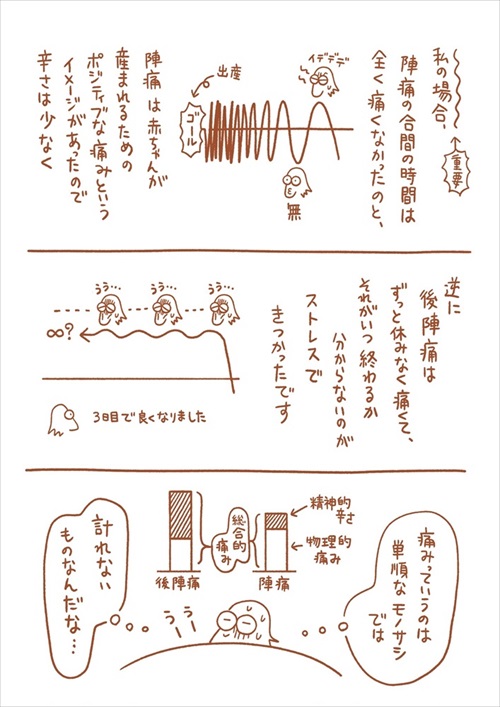 私の場合、
重要
陣痛の合間の時間は
全く痛くなかったのと、
イデデデ
無
出産
ゴール
陣痛は赤ちゃんが
産まれるための
ポジティブな痛みという
イメージがあったので
辛さは少なく
逆に
後陣痛は
ずっと休みなく痛くて、
それがいつ終わるか
分からないのが
ストレスで
きつかったです
うう…
うう…
うう…
∞?
3日目で良くなりました
痛みっていうのは
単順なモノサシ
では
精神的
辛さ
物理的
痛み
総合的
痛み
後陣痛
陣痛
うー
うー
計れない
ものなんだな…